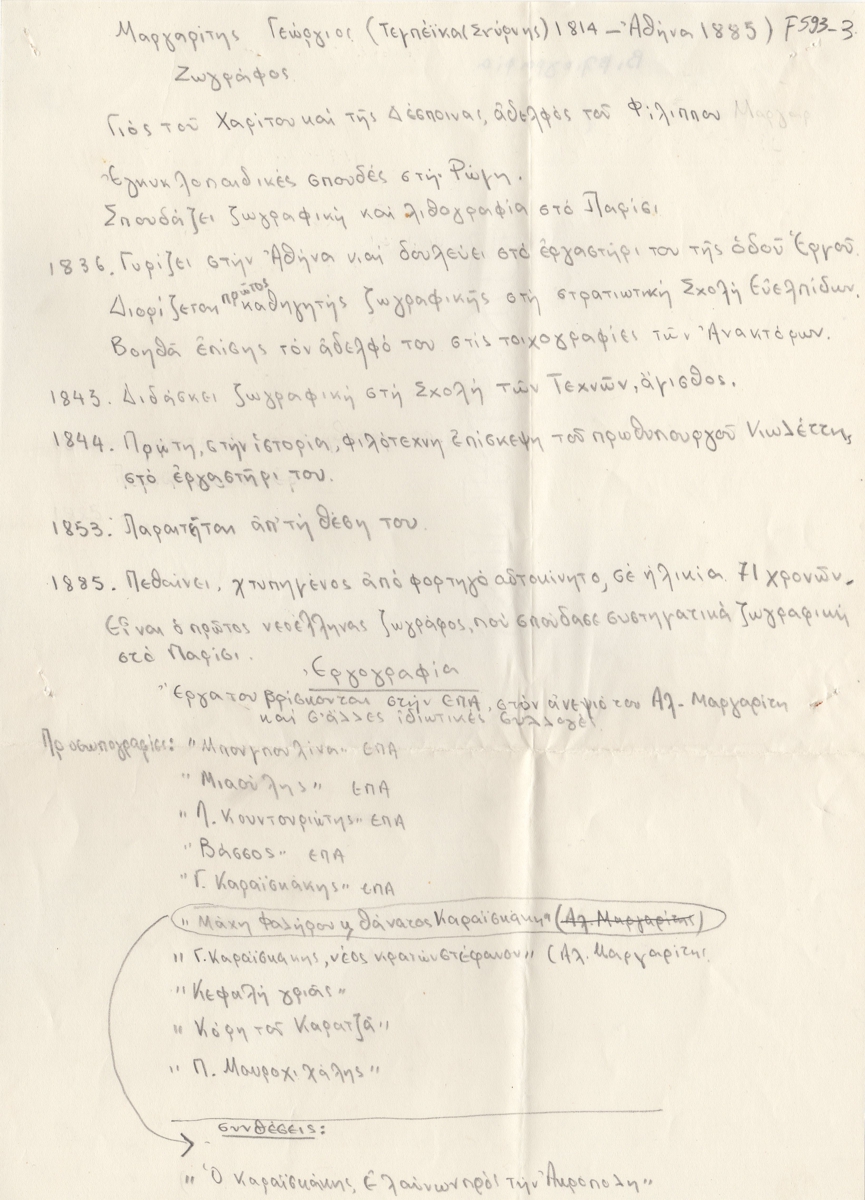 Μαργαρίτης Γεώργιος (Τεμπέϊκα (Σμύρνης) 1814 – Ἀθήνα 1885) F593-3
Ζωγράφος
Γιός τοῦ Χαρίτου καί τῆς Δέσποινας, ἀδελφός τοῦ Φίλιππου Μαργαρ
Ἐγκυκλοπαιδικές σπουδές στή Ρώμη.
Σπουδάζει ζωγραφική καί λιθογραφία στό Παρίσι
1836. Γυρίζει στήν Ἀθήνα καί δουλεύει στό ἐργαστήρι του τῆς ὁδοῦ Ἑρμοῦ.
Διορίζεται πρῶτος καθηγητής ζωγραφικῆς στή στρατιωτική Σχολή Εὐελπίδων.
Βοηθᾶ ἐπίσης τόν ἀδελφό του στίς τοιχογραφίες τῶν Ἀνακτόρων.
1843. Διδάσκει ζωγραφική στή Σχολή τῶν Τεχνῶν, ἄμισθος.
1844. Πρώτη, στήν ἱστορία, φιλότεχνη ἐπίσκεψη τοῦ πρωθυπουργοῦ Κωλέττη,
στό ἐργαστήρι του.
1853. Παραιτῆται ἀπ' τή θέση του.
1885. Πεθαίνει, χτυπημένος ἀπό φορτηγό αὐτοκίνητο, σέ ἡλικία 71 χρονῶν.
Εἶναι ὁ πρῶτος νεοέλληνας ζωγράφος, πού σπούδασε συστηματικά ζωγραφική
στό Παρίσι.
Ἐργογραφία
Ἔργα του βρίσκονται στήν ΕΠΑ, στόν ἀνεψιό του Αλ. Μαργαρίτη
καί σ' ἄλλες ἰδιωτικές συλλογές
Προσωπογραφίες: "Μπουμπουλίνα" ΕΠΑ
"Μιαούλης" ΕΠΑ
"Λ. Κουντουριώτης" ΕΠΑ
"Βάσσος" ΕΠΑ
"Γ. Καραϊσκάκης" ΕΠΑ
"Μάχη Φαλήρου κ θάνατος Καραϊσκάκη" (Αλ. Μαργαρίτης)
"Γ. Καραϊσκάκης, νέος κρατῶν στέφανον" (Αλ. Μαργαρίτης
"Κεφαλή γριᾶς"
"Κόρη τοῦ Καρατζᾶ"
"Π. Μαυρομιχάλης"
συνθέσεις:
"Ὁ Καραϊσκάκης ἐλαύνων πρός τήν Ἀκρόπολη"